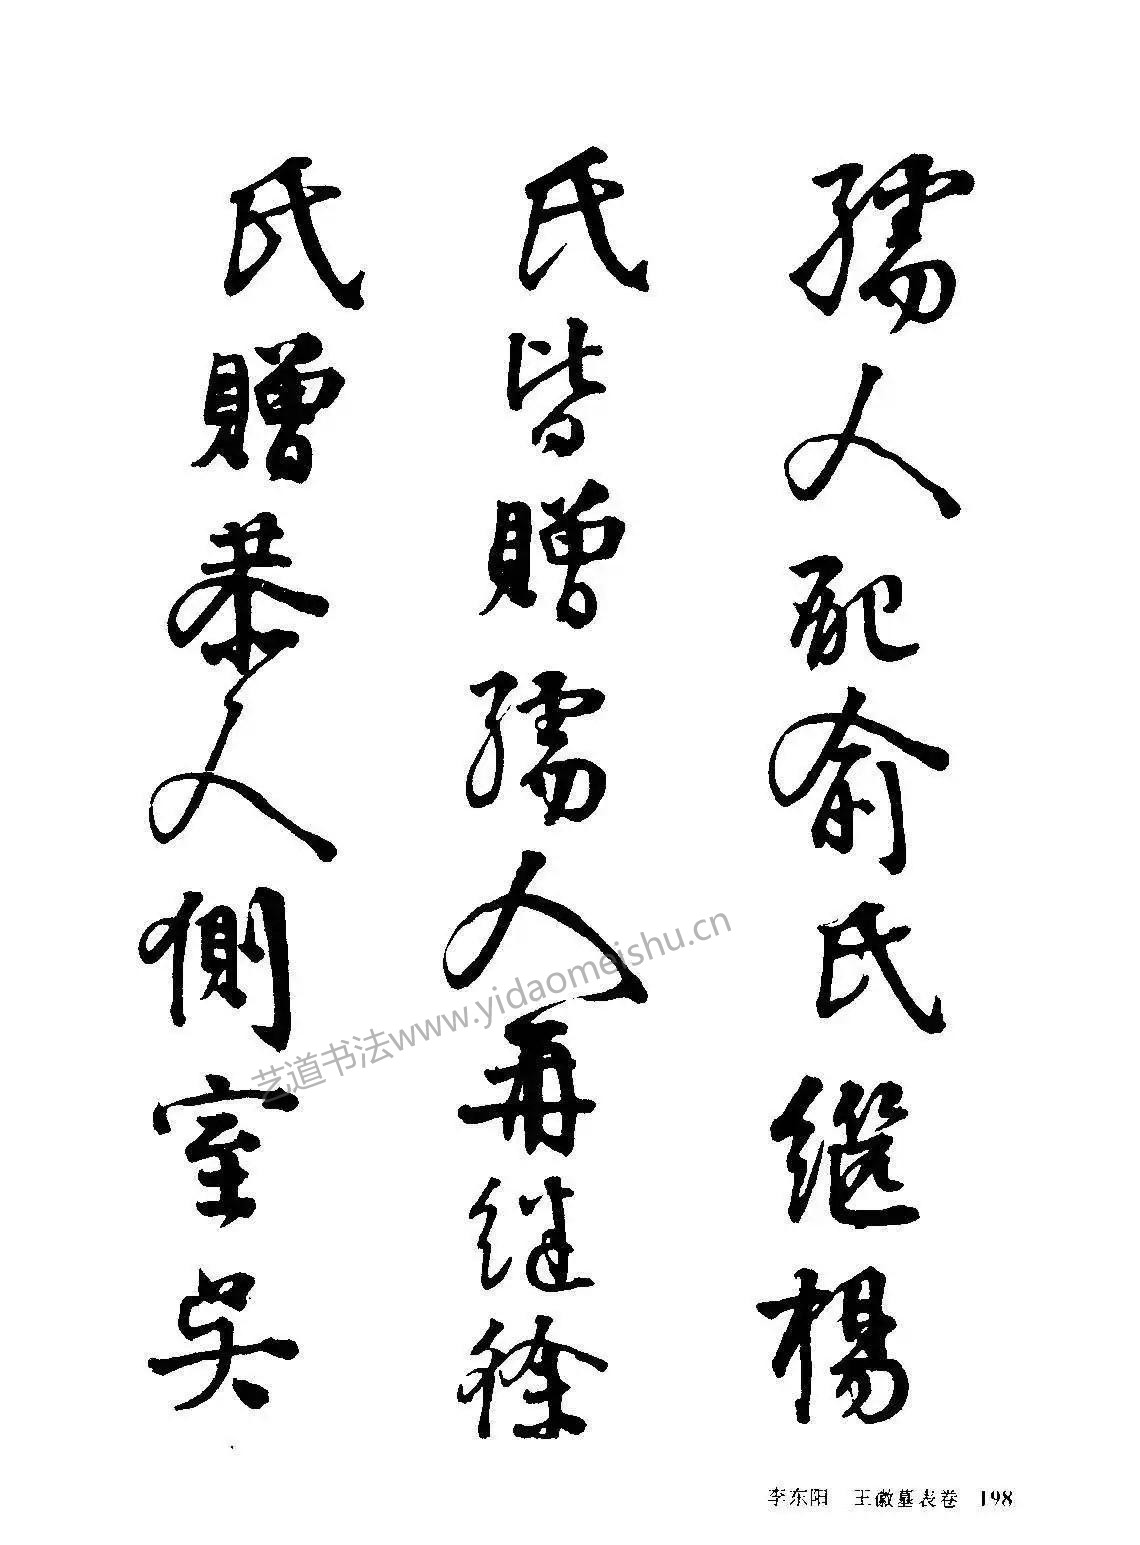 孺人配俞氏继楊
氏皆贈孺人再继徐
氏贈恭人側室吴
艺道书法www.yidaomeishu.cn
李东阳 王徽墓表卷 198